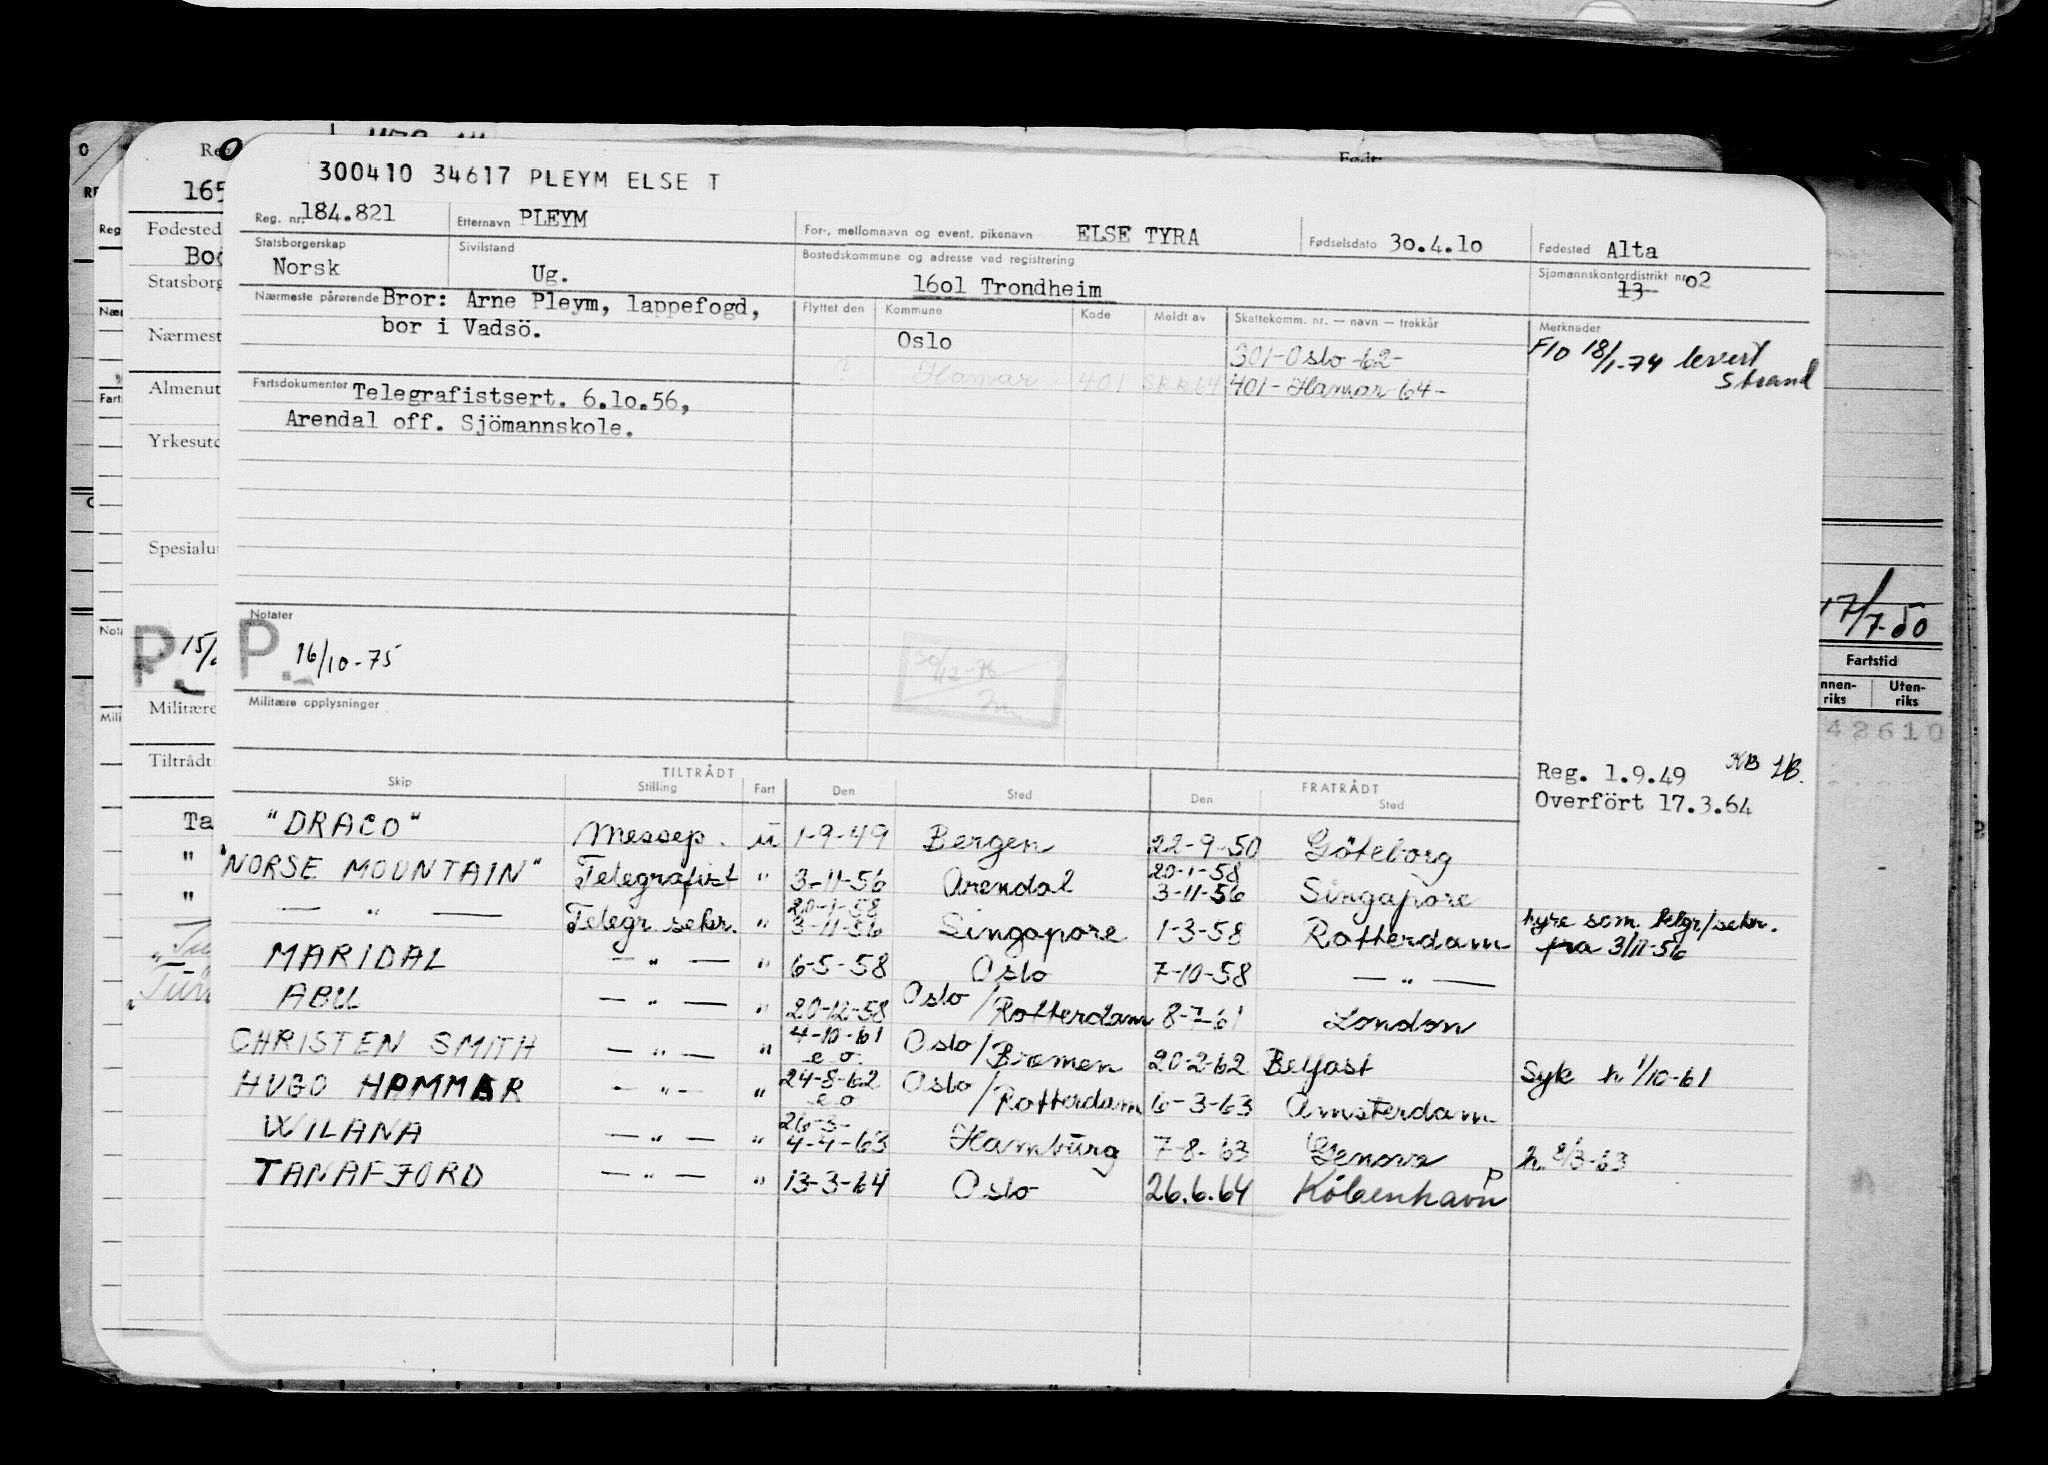 300410 34617 PLEYM ELSE T
Reg. nr. 184.821 Etternavn PLEYM For-, mellomnavn og event. pikenavn ELSE TYRA Fødselsdato 30.4.10 Fødested Alta
Statsborgerskap Norsk Sivilstand Ug. Bostedskommune og adresse ved registrering 1601 Trondheim Sjømannskontordistrikt nr. 13 02
Nærmeste pårørende Bror: Arne Pleym, lappefogd,
bor i Vadsö.
Flyttet den Kommune Kode Meldt av Skattekomm. nr. — navn — trekkår Merknader
Oslo 301-Oslo-62-
Hamar 401 401-Hamar 64-
F10 18/1-74 levert
Strand
Fartsdokumenter Telegrafistsert. 6.10.56,
Arendal off. Sjömannskole.
Notater
P. 16/10-75
30/12-76
Militære opplysninger
Reg. 1.9.49
Overfört 17.3.64
TILTRÅDT FRATRÅDT
Skip Stilling Fart Den Sted Den Sted
"DRACO" Messep. u 1-9-49 Bergen 22-9-50 Göteborg
20-1-58
"NORSE MOUNTAIN" Telegrafist " 3-11-56 Arendal 3-11-56 Singapore
20-1-58
— " — Telegr. sekr. " 3-11-56 Singapore 1-3-58 Rotterdam hyre som telgr/sekr.
fra 3/11-56
MARIDAL — " — " 6-5-58 Oslo 7-10-58 — " —
ABU — " — " 20-12-58 Oslo/Rotterdam 8-7-61 London
CHRISTEN SMITH — " — " 4-10-61 e o Oslo/Bremen 20-2-62 Belfast Syk h 1/10-61
HUGO HAMMAR — " — " 24-8-62 e o Oslo/Rotterdam 6-3-63 Amsterdam
26-3-
WILANA — " — " 4-4-63 Hamburg 7-8-63 Genova h. 8/3-63
TANAFJORD — " — " 13-3-64 Oslo 26.6.64 Köbenhavn P
Født:
165
Fødested
Statsborg
Nærmest
Almenut
Yrkesutd
Spesialu
P 15/
Militære
Tiltrådt
Ta
17/7-50
Fartstid
nnen-riks Uten-riks
42610